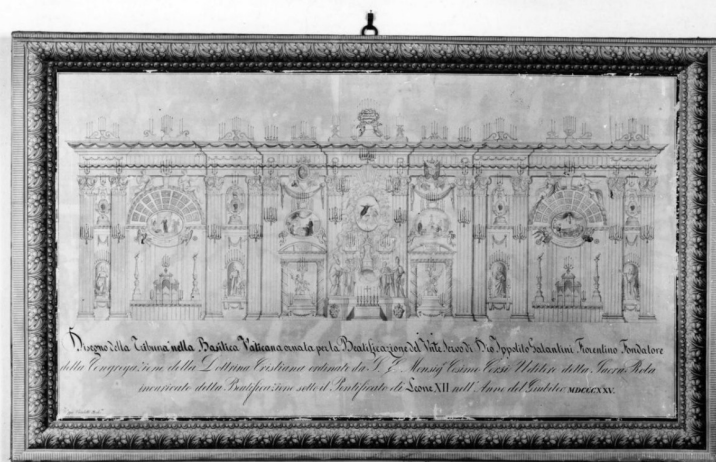 Disegno della Tribuna nella Basilica Vaticana ornata per la Beatificazione del Vñte. Servo di Dio Ippolito Galantini Fiorentino Fondatore
della Congregazione della Dottrina Cristiana ordinato da S. E. Monsigr. Cosimo Corsi Uditore della Sacra Rota
incaricato della Beatificazione sotto il Pontificato di Leone XII nell'Anno del Giubileo MDCCCXXV.